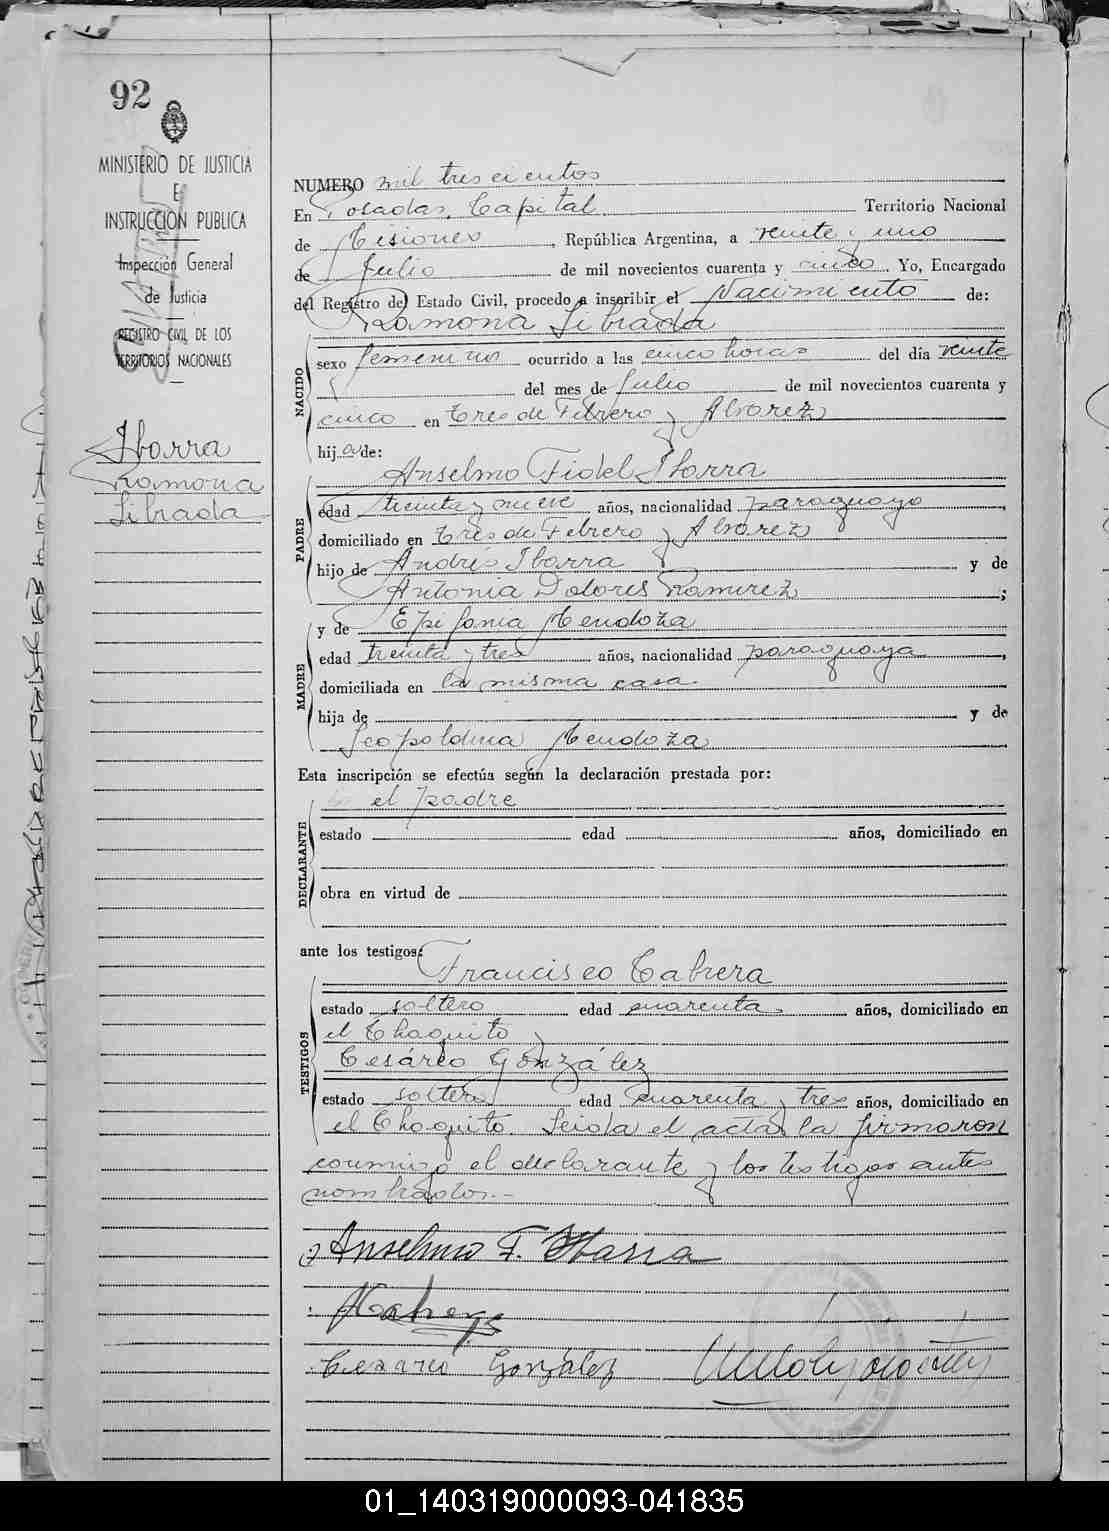 92
MINISTERIO DE JUSTICIA
E
INSTRUCCION PUBLICA
Inspección General
de Justicia
REGISTRO CIVIL DE LOS
TERRITORIOS NACIONALES
Ibarra
Ramona
Librada
NUMERO mil trescientos
En Posadas, Capital Territorio Nacional
de Misiones, República Argentina, a veinte y uno
de Julio de mil novecientos cuarenta y cinco. Yo, Encargado
del Registro del Estado Civil, procedo a inscribir el Nacimiento de:
Ramona Librada
NACIDO
sexo femenino ocurrido a las cinco horas del día veinte
del mes de Julio de mil novecientos cuarenta y
cinco en Tres de Febrero y Alvarez
hija de:
Anselmo Fidel Ibarra
PADRE
edad treinta y nueve años, nacionalidad paraguayo,
domiciliado en Tres de Febrero y Alvarez
hijo de Andrés Ibarra y de
Antonia Dolores Ramirez;
y de Epifania Mendoza
MADRE
edad treinta y tres años, nacionalidad paraguaya,
domiciliada en la misma casa.
hija de y de
Leopoldina Mendoza
Esta inscripción se efectúa según la declaración prestada por:
el padre
DECLARANTE
estado edad años, domiciliado en
obra en virtud de
ante los testigos: Francisco Cabrera
TESTIGOS
estado soltero edad cuarenta años, domiciliado en
el Chaquito y
Cesáreo González
estado soltero edad cuarenta y tres años, domiciliado en
el Chaquito. Leida el acta, la firmaron
conmigo el declarante y los testigos antes
nombrados.-
Anselmo F. Ibarra
Cezario González
01_140319000093-041835